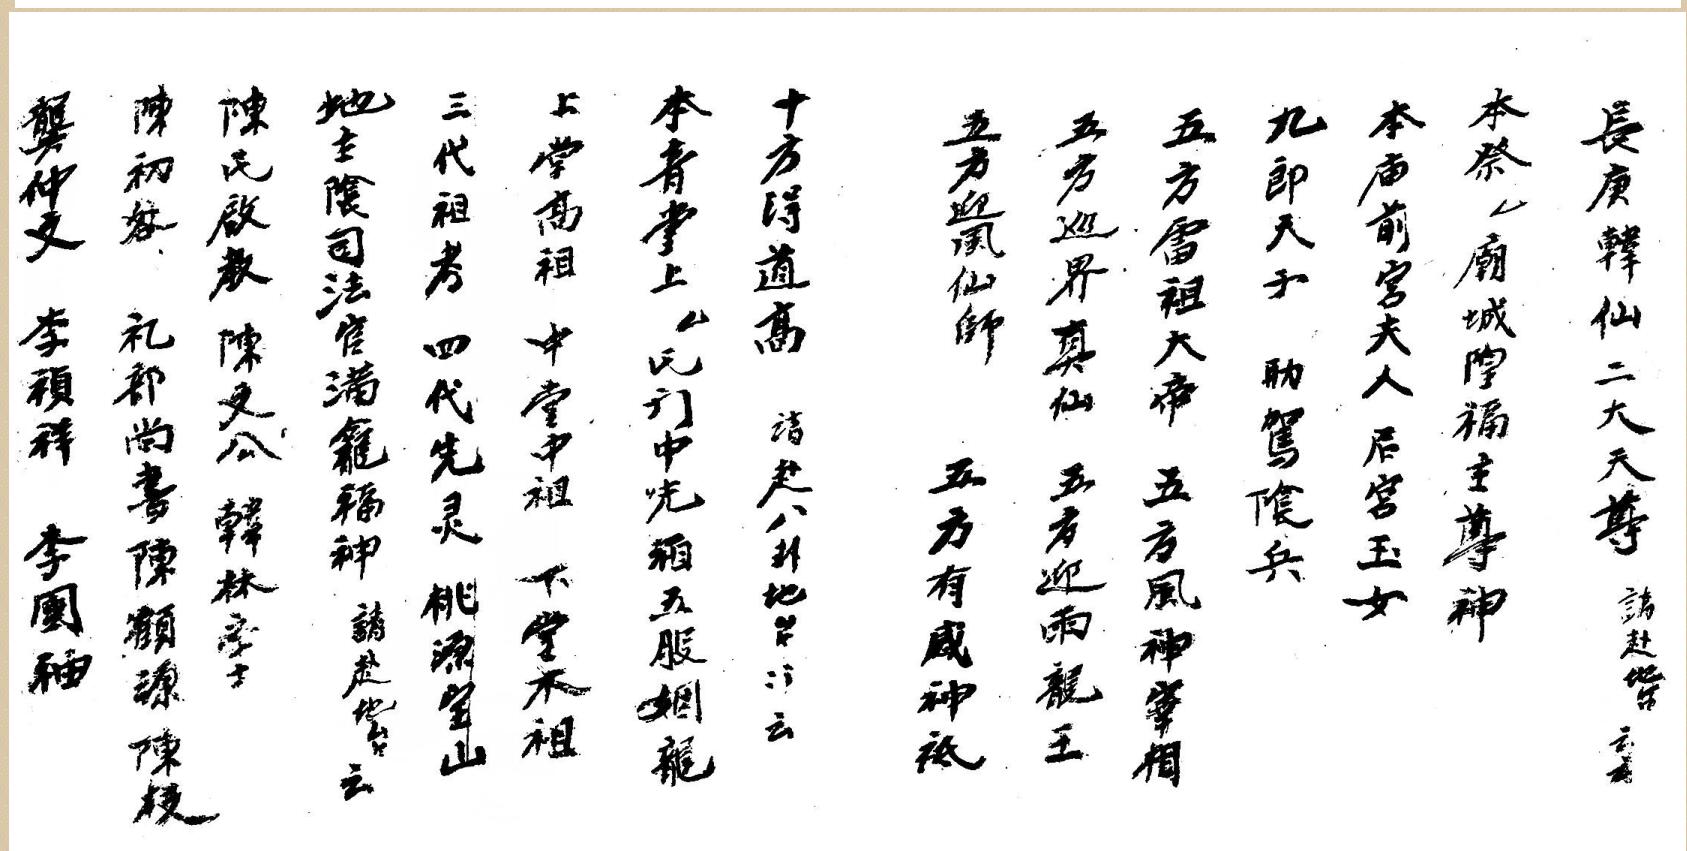 長庚韓仙二大天尊 請赴地台 云云
本祭厶廟城隍福主尊神
本庙前宮夫人后宮玉女
九郎天子 助駕陰兵
五方雷祖大帝 五方風神宰相
五方巡界真仙 五方迎雨龍王
五方迎風仙師 五方有感神祇
十方得道高 請赴八卦地台 云
本音堂上厶氏门中先祖五服姻龍
上堂高祖 中堂中祖 下堂不祖
三代祖考 四代先灵 桃源宝山
地主陰司法官满龕福神 請赴地台 云
陳民啟教 陳文公 韓林学士
陳初 礼部尚書陳顧源 陳
龔仲文 李禎祥 李國